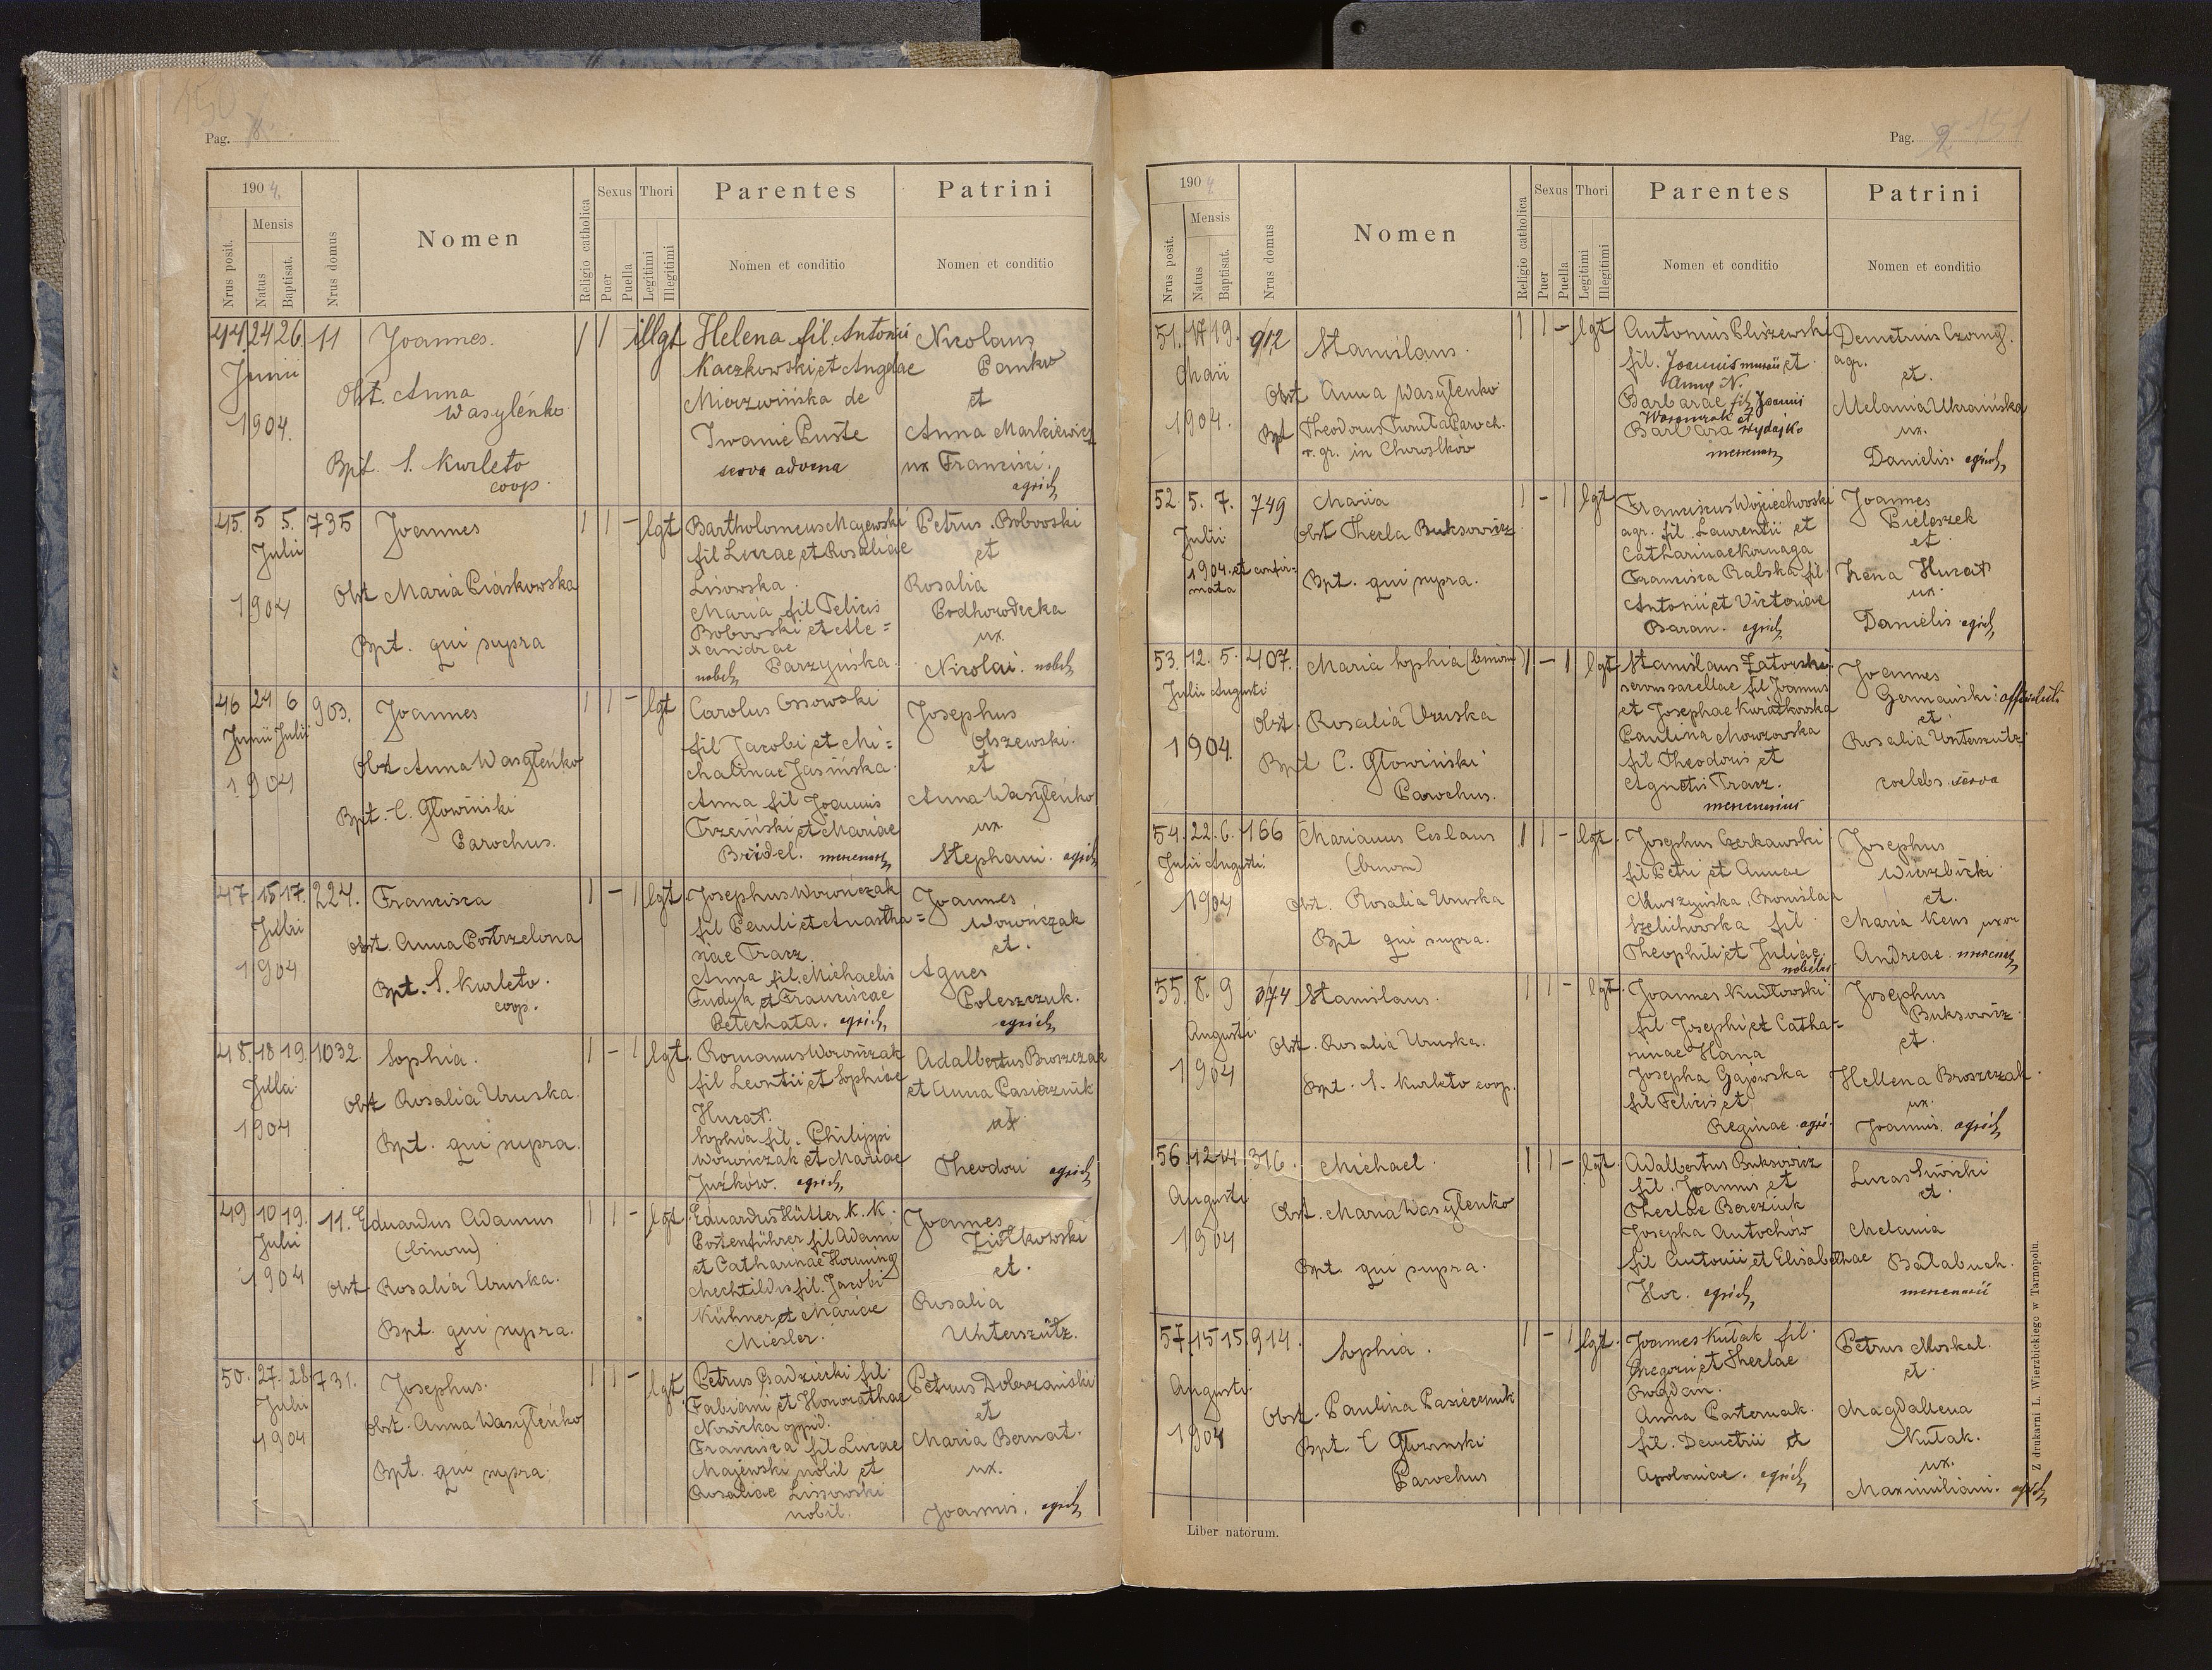 150
Pag. 8.
1904.
Nrus posit.
Mensis
Natus
Baptisat.
Nrus domus
Nomen
Religio catholica
Sexus
Puer
Puella
Thori
Legitimi
Illegitimi
Parentes
Nomen et conditio
Patrini
Nomen et conditio
44. 24 26. 11 Joannes. 1 1 - illgt
Junii
1904.
Obst. Anna
Wasylénko
Bpt. S. Kurleto
coop.
Helena fil. Antonii
Kaczkowski et Angelae
Mierzwińska de
Iwanie Puste
serva advena
Nicolaus
Pańko
et
Anna Markiewicz
ux Francisci.
agrich
45. 5 5. 735 Joannes 1 1 - lgt
Julii
1904
Obst Maria Piaskowska
Bpt. qui supra
Bartholomeus Majewski
fil Lucae et Rosaliae
Lisowska.
Maria fil Felicis
Bobowski et Ale=
xandrae
nobch Parzyńska.
Petrus Bobowski
et
Rosalia
Podhorodecka
ux.
Nicolai. nobch
46 24 6 903. Joannes 1 1 - lgt
Junii Julii
1904
Obst Anna Wasylénko
Bpt. C. Głowiński
Parochus.
Carolus Ossowski
fil Jacobi et Mi=
chalinae Jasińska
Anna fil Joannis
Trzciński et Mariae
Bridel. mercenarch
Josephus
Olszewski.
et
Anna Wasylénko
ux
Stephani. agrich
47 15 17. 224. Francisca 1 - 1 lgt
Julii
1904
Obst. Anna Postrzelona
Bpt. S. Kurleto.
coop.
Josephus Worończak
fil Pauli et Anastha=
siae Tracz.
Anna fil. Michaelis
Fudyk et Franciscae
Petechata. agrich
Joannes
Worończak
et.
Agnes
Poleszczuk.
agrich
48. 18 19. 1032. Sophia. 1 - 1 lgt.
Julii
1904
Obst Rosalia Uruska.
Bpt. qui supra.
Romanus Worończak
fil Leontii et Sophiae
Hucał.
Sophia fil. Philippi
Worończak et Mariae
Juzków. agrich
Adalbertus Broszczak
et Anna Pasiecznik
ux
Theodori agrich
49 10 19. 11. Eduardus Adamus 1 1 - lgt.
Julii
1904
(binom)
Obst. Rosalia Uruska.
Bpt. qui supra.
Eduardus Hütter k. k.
Postenführer fil Adami
et Catharinae Horning
Mechtildis fil. Jacobi
Kühner et Mariae
Miesler.
Joannes
Ziółkowski
et.
Rosalia
Unterszütz.
50. 27. 28 731. Josephus. 1 1 - lgt
Julii
1904
Obst. Anna Wasylénko
Bpt. qui supra.
Petrus Gadziecki fil.
Fabiani et Honorathae
Nowicka oppid.
Francisca fil Lucae
Majewski nobil et
Rosaliae Lissowski
nobil.
Petrus Dobrzański
et
Maria Bernat.
ux.
Joannis. agrich
Pag. 9 151
1904
Nrus posit.
Mensis
Natus
Baptisat.
Nrus domus
Nomen
Religio catholica
Sexus
Puer
Puella
Thori
Legitimi
Illegitimi
Parentes
Nomen et conditio
Patrini
Nomen et conditio
51. 17 19. 912 Stanislaus. 1 1 - lgt
Maii
1904.
Obst Anna Wasylenko
Bpt Theodorus Paroch.
r. gr. in
Antonius Pliszewski
fil. Joannis et
Annae N.
Barbarae fil Joannis
et
Barbara
Demetrius
agr.
et.
Melania Ukraińska
ux.
Danielis. agrich
52. 5. 7. 749 Maria 1 - 1 lgt
Julii
1904. et confir-
mata
Obst Thecla Buksowicz
Bpt. qui supra.
Franciscus Wojciechowski
agr. fil. Laurentii et
Catharinae Kornaga
Francisca Rabska fil
Antonii et Victoriae
Baran. agrich
Joannes
Pieleszek
et
Irena Hucał
ux.
Danielis agrich
53. 12. 5. 407. Maria Sophia (binom) 1 - 1 lgt.
Julii Augusti
1904.
Obst. Rosalia Uruska
Bpt C. Głowiński
Parochus.
Stanislaus Zatorski
servus sacellae fil Joannis
et Josephae Kwiatkowska
Paulina Morzowska
fil Theodoris et
Agnetis Tracz.
mercenarius
Joannes
Germański
et
Rosalia Unterszütz
coelebs serva
54. 22. 6. 166 Marianus Ceslaus 1 1 - lgt.
Julii Augusti.
1904
(binom)
Obst. Rosalia Uruska
Bpt qui supra.
Josephus Czerkawski
fil Petri et Annae
Murzyńska, Bronislaa
Szelichowska fil
Theophili et Juliae.
nobiles
Josephus
Wierzbicki
et.
Maria Kens uxor
Andreae.
55. 8. 9 374 Stanislaus. 1 1 - lgt.
Augusti
1904
Obst. Rosalia Uruska.
Bpt. S. Kurleto coop.
Joannes Kudłowski
fil. Josephi et Catha-
rinae Hana
Josepha Gajowska
fil Felicis et
Reginae agri.
Josephus
Buksowicz
et.
Hellena Broszczak.
ux.
Joannis. agrich
56. 12 14 316. Michael. 1 1 - lgt.
Augusti
1904
Obst. Maria Wasylenko
Bpt. qui supra.
Adalbertus Buksowicz
fil. Joannis et
Theclae Bereziuk
Josepha Antochów
fil Antonii et Elisabethae
Hoc. agrich
Lucas Siwicki
et.
Melania
Bałabuch.
mercenarii
57. 15 15. 914. Sophia. 1 - 1 lgt.
Augusti
1904
Obst. Paulina Pasiecznik
Bpt. C Głowinski
Parochus
Joannes Kutak fil.
Gregorii et Theclae
Bogdan.
Anna Pasternak.
fil. Demetrii et
Apoloniae. agrich
Petrus Moskal.
et
Magdallena
Kutak.
ux.
Maximiliani. agrich
Liber natorum.
Z drukarni L. Wierzbickiego w Tarnopolu.